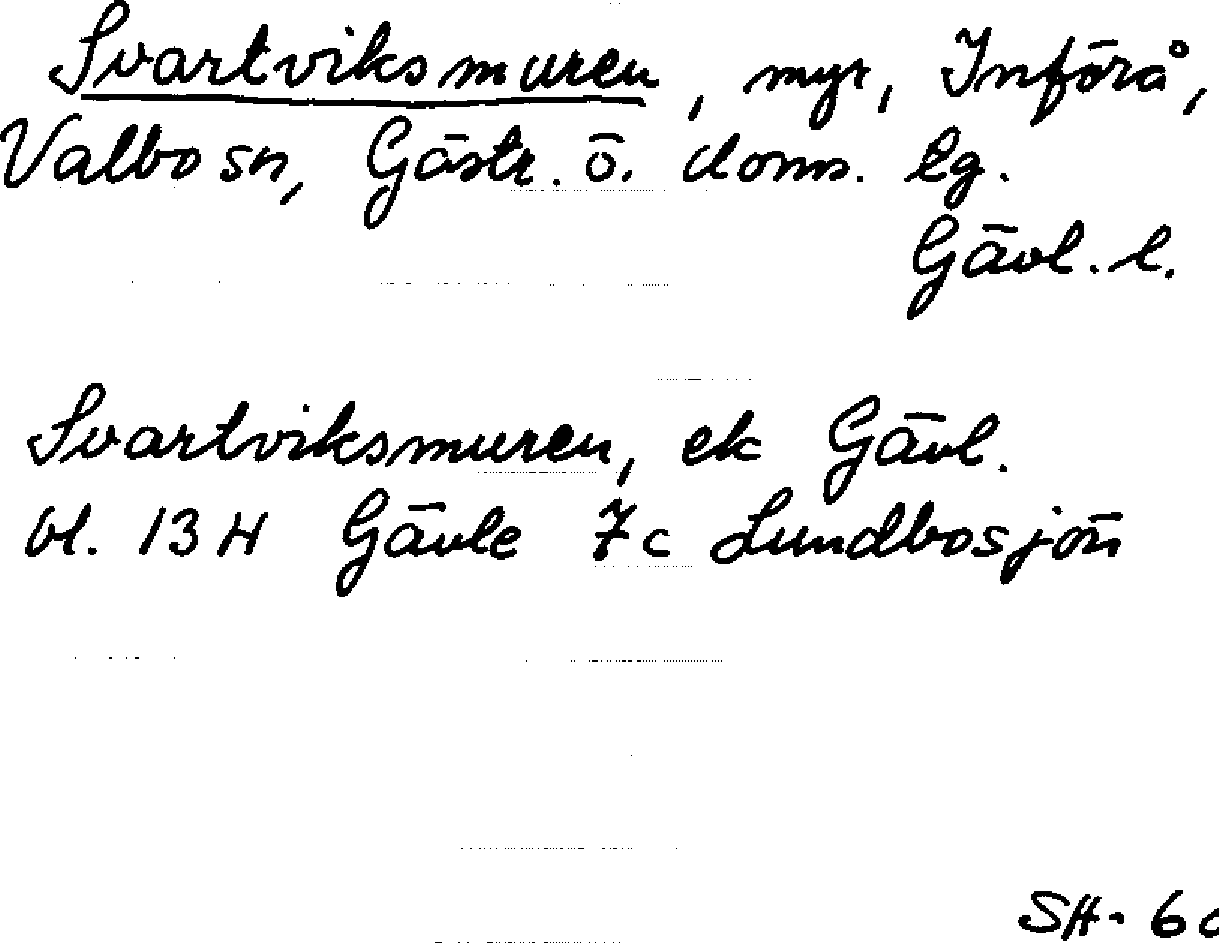 Svartviksmuren, myr, Införå,
Valbo sn, Gästr. ö. doms. lg.
Gävl. l.
Svartviksmuren, ek Gävl.
bl. 13 H Gävle 7c Lundbosjön
SH. 60